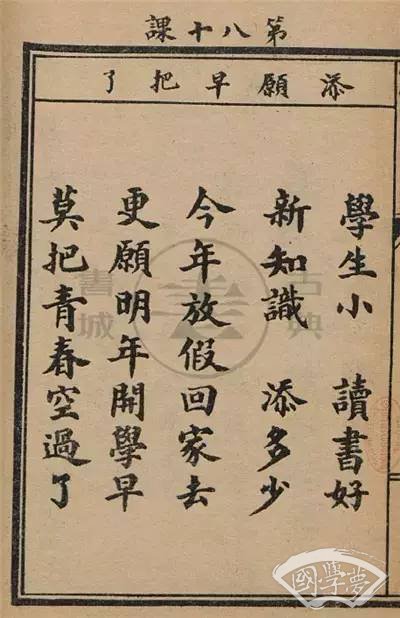 第八十課
添願早把了
學生小　讀書好
新知識　添多少
今年放假回家去
更願明年開學早
莫把青春空過了
古典書城
國學夢